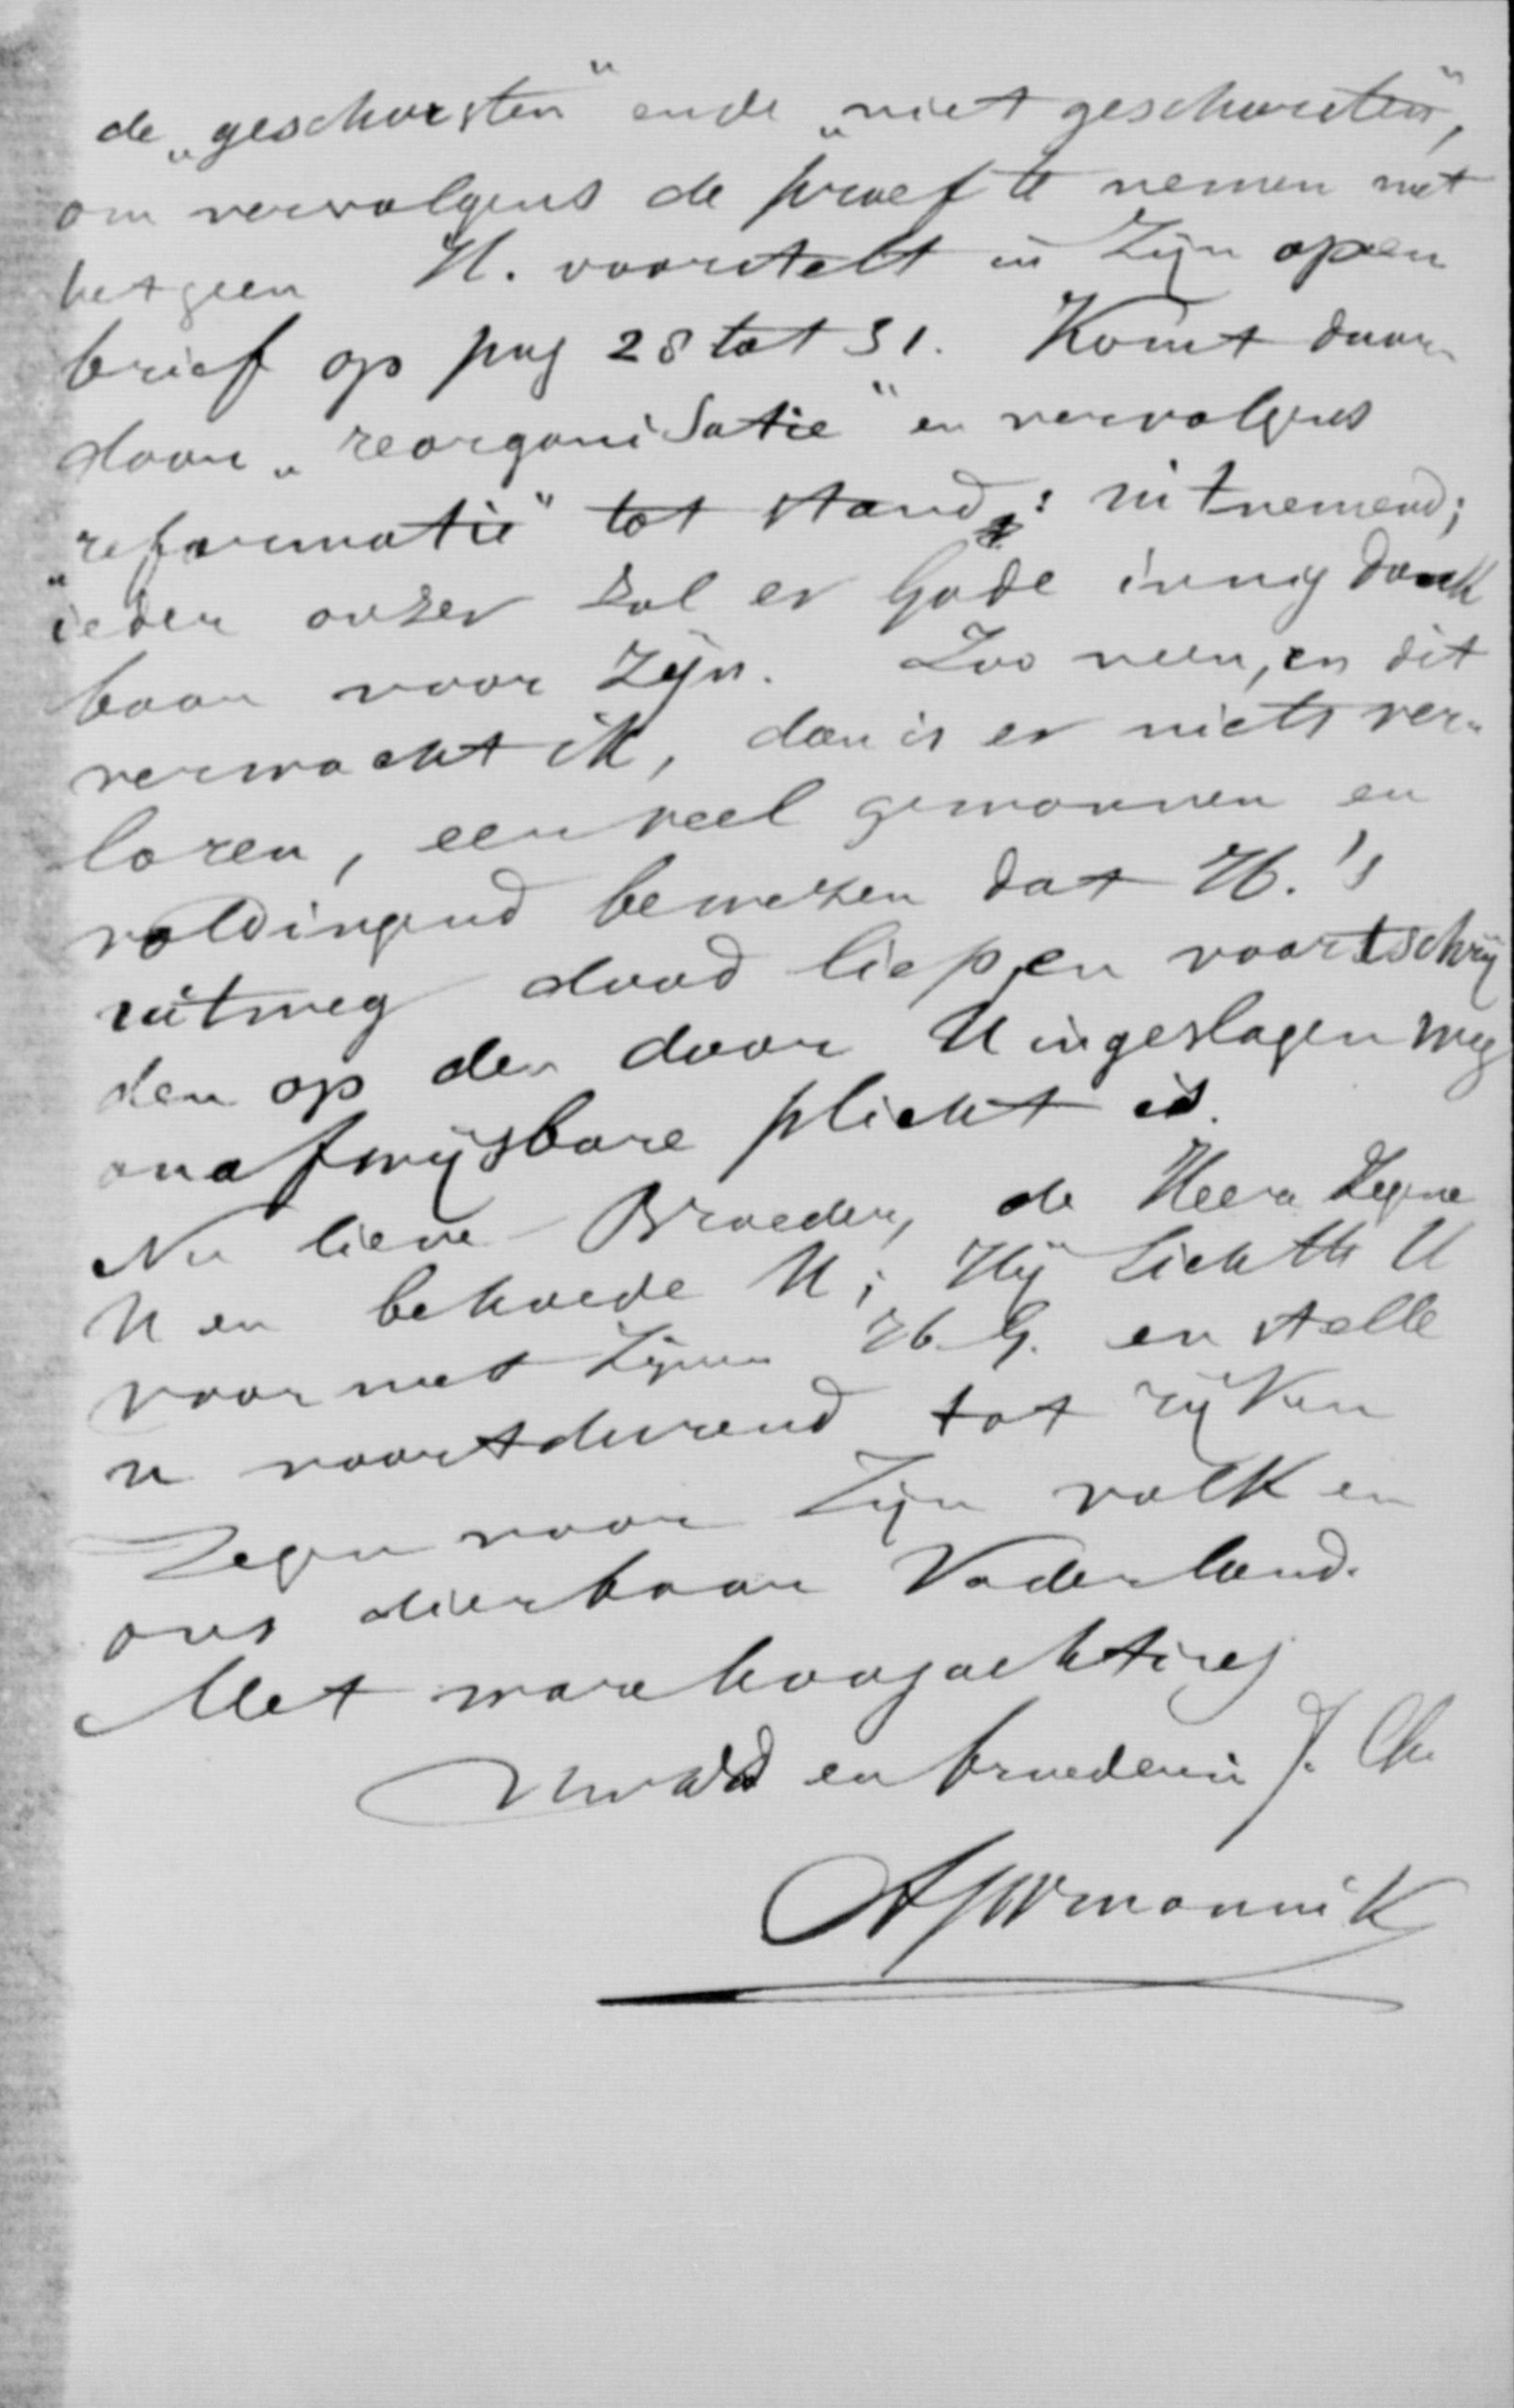 de „geschorsten" ende „niet geschorsten",
om vervolgens de proef te nemen met
hetgeen H. voorstelt in Zijn open
brief op pag 28 tot 31. Komt daar
door „reorganisatie" en vervolgens
„reformatie" tot stand: uitnemend;
ieder onzer zal er Gode innig dank
baar voor zijn. Zoo neen, en dit
verwacht ik, dan is er niets ver-
loren, een veel gewonnen en
voldingend bewezen dat H.'s
uitweg dood liep, en voortschrij
den op den door U ingeslagen weg
onafwijsbare plicht is.
Nu lieve Broeder, de Heere Zegene
U en behoede U; Hij lichtte U
voor met Zijnen H. G. en stelle
u voortdurend tot rijken
Zegen voor Zijn volk en
ons dierbaar Vaderland.
Met ware hoogachting
en broeder in J. Chr.